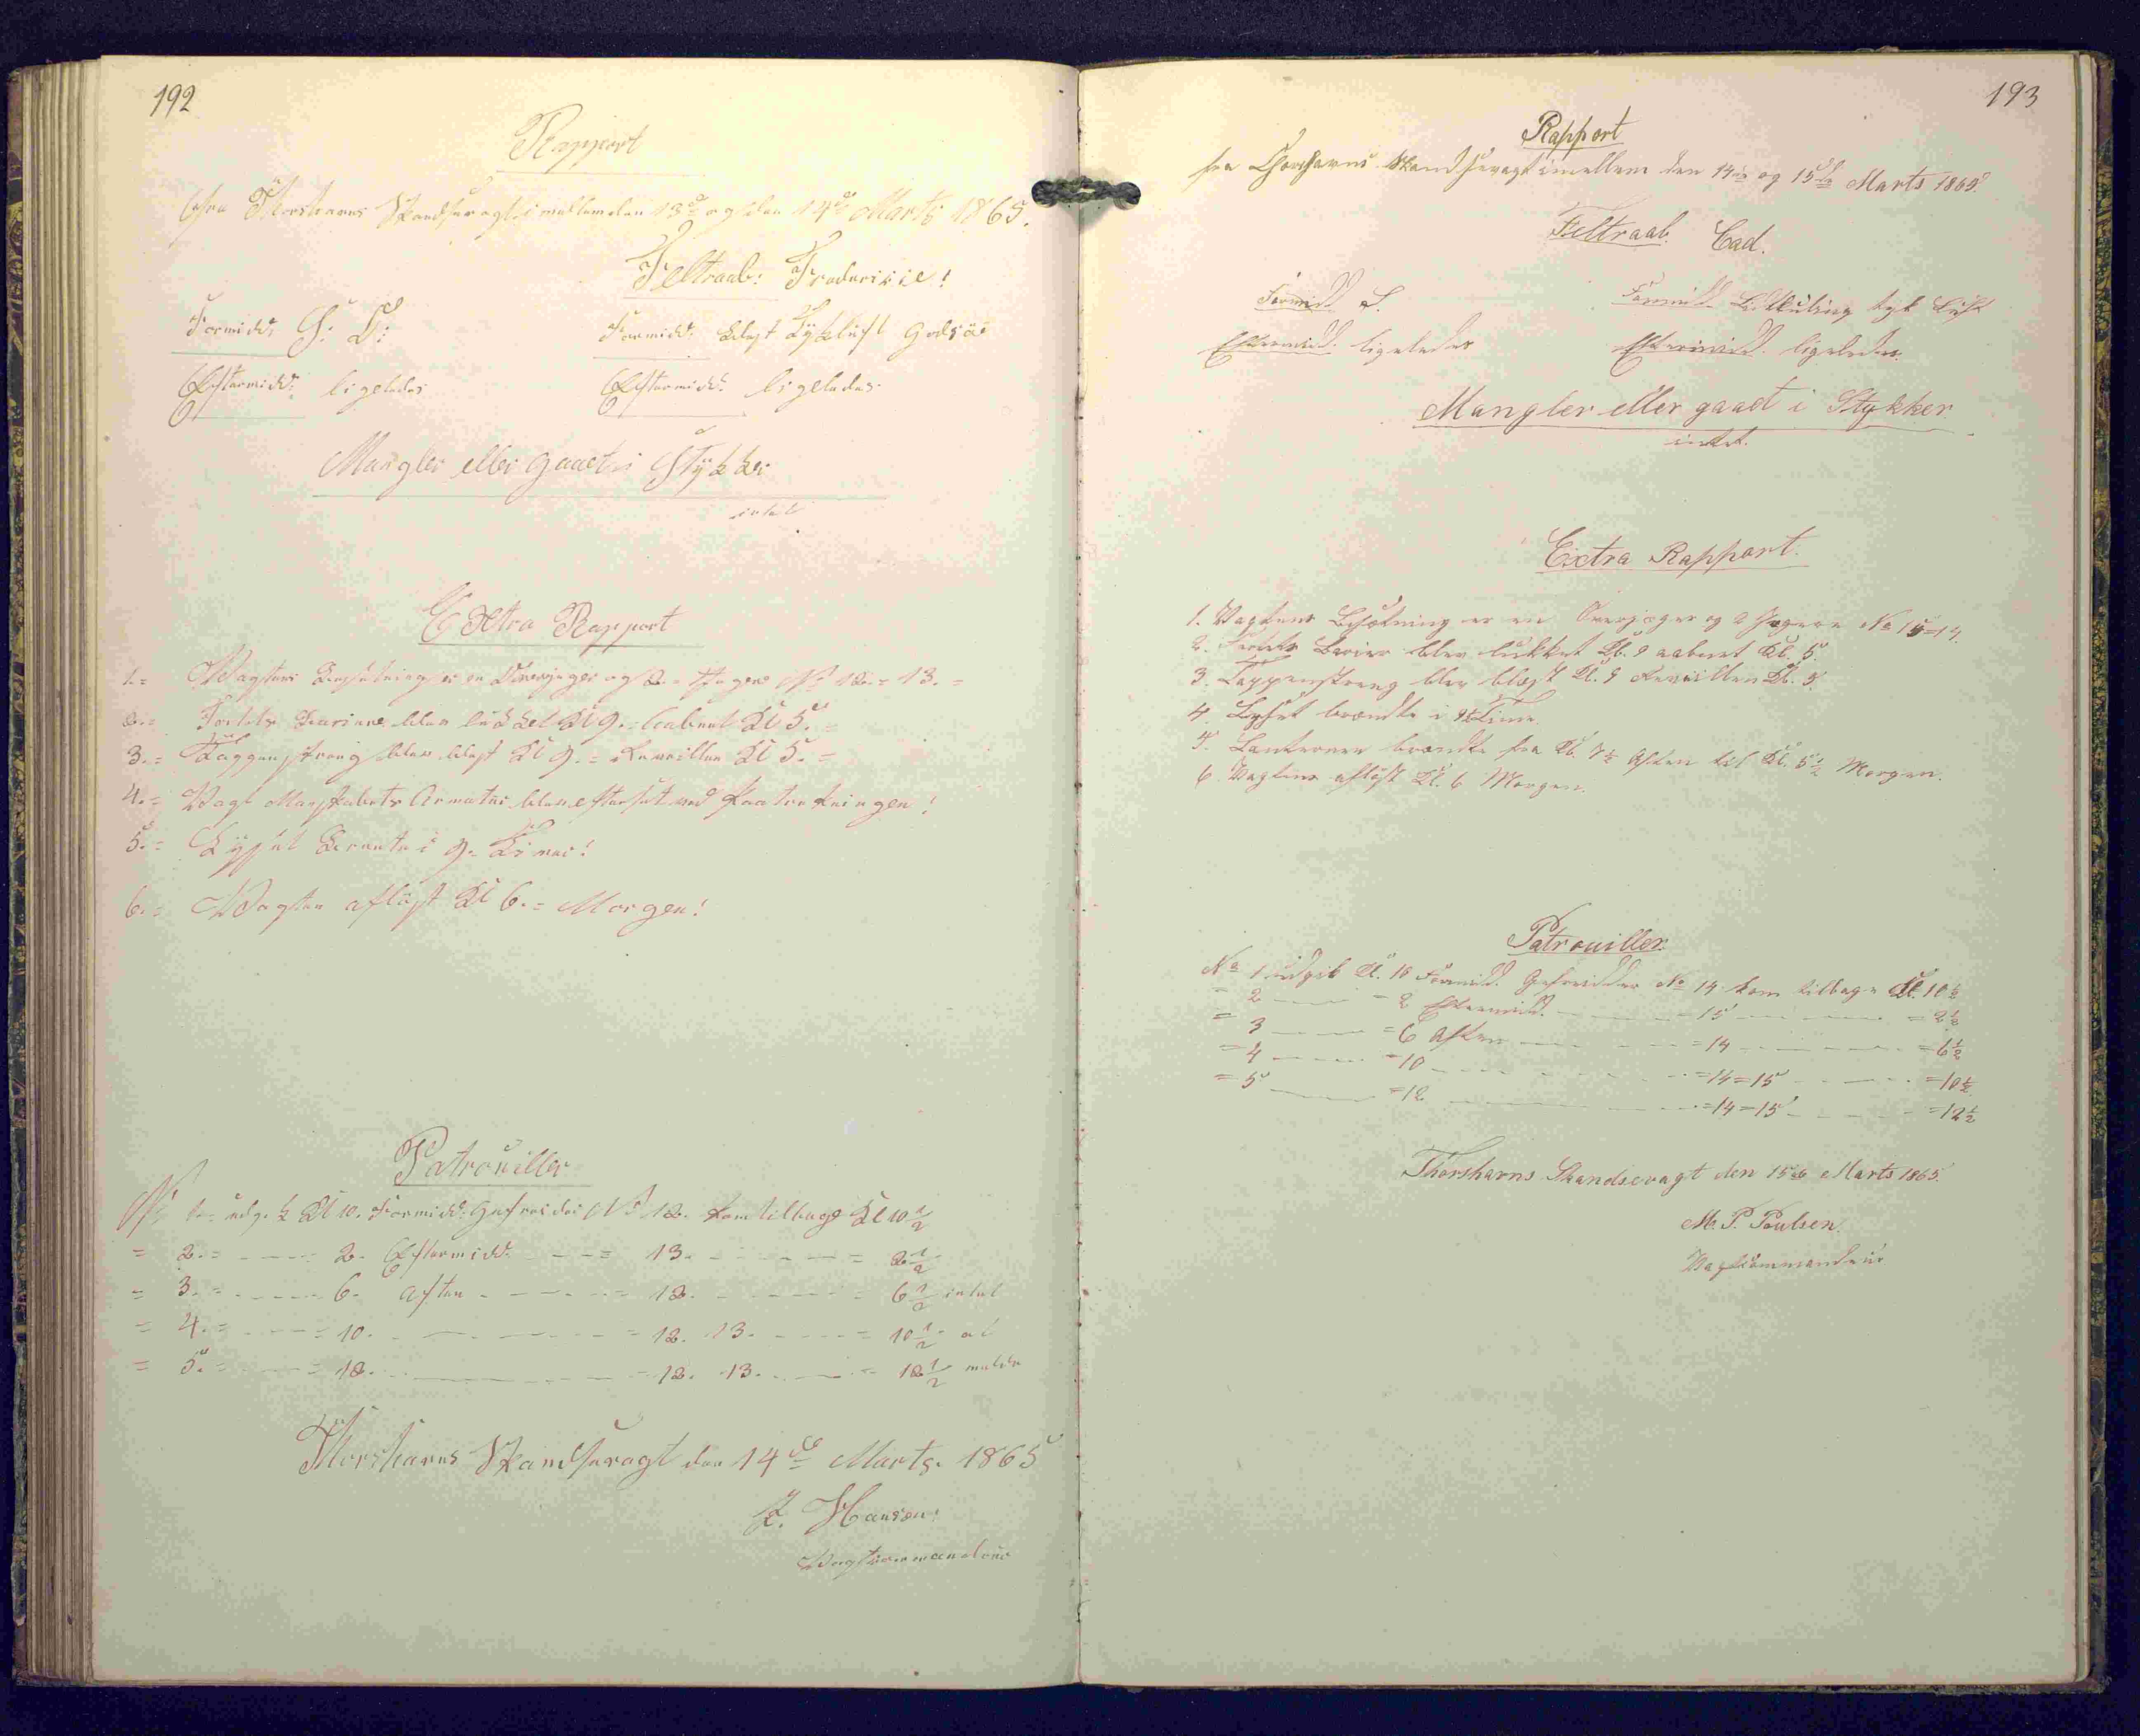 192
Rapport
fra Thorshavns Skandsevagt imellem den 13de og den 14de Marts 1865.
Feltraab: Fredericie!
Formidd: S: O:
Formidd: Blæst Tyk luft
Eftermidd: ligeledes
Eftermidd: ligeledes
Mangler eller gaaet i Stykker
intet
Extra Rapport
1.= Vagtens Besætning er en Overjæger og 2.= Jægere No 12.= 13.=
2.= Fortets Bariere blev lukket Kl 9.= aabnet Kl 5.=
3.= Tappenstreng blev blæst Kl 9.= Reveillen Kl 5.=
4.= Vagt Mandskabets Armatur blev efterset ved Paatrædningen!
5.= Lyset Brændte i 9.= Timer!
6.= Vagten afløst Kl 6.= Morgen!
Patrouiller
No 1.= udgik Kl 10. Formidd: Gefreider No 12. kom tilbage Kl 10 1/2
= 2.= - - - 2. Eftermidd. - - = 13. - - - = 2 1/2
= 3.= - - - 6. Aften - - - = 12. - - - = 6 1/2 intet
= 4.= - - - = 10. - - - = 12. 13. - - - = 10 1/2 at
= 5.= - - - = 12. - - - = 12. 13. - - - = 12 1/2 melde
Thorshavns Skandsevagt den 14de Marts. 1865
J. Hansen:
Vagtcommandeur
193
Rapport
fra Thorshavns Skandsevagt imellem den 14de og 15de Marts 1865.
Feltraab. Cad.
Formidd S.
Formidd. Lidt Kuling tyk Luft
Eftermidd. ligeledes
Eftermidd. ligeledes.
Mangler eller gaaet i Stykker
intet.
Extra Rapport.
1. Vagtens Besætning er en Overjæger og 2 Jægere No 15=14.
2. Fortets Bariere blev lukket Kl. 9 aabnet Kl. 5.
3. Tappenstreng blev blæst Kl. 9 Reveillen Kl. 5.
4. Lyset brændte i 9 1/2 Time.
5. Lanternen brændte fra Kl. 7 1/2 Aften til Kl. 5 1/2 Morgen.
6. Vagten afløst Kl. 6 Morgen.
Patrouiller.
No 1 udgik Kl. 10 Formidd. Gefreider No 14 kom tilbage Kl. 10 1/2
= 2 - - - = 2 Eftermidd. - - - = 15 - - - = 2 1/2
= 3 - - - = 6 Aften - - - = 14 - - - = 6 1/2
= 4 - - - = 10 - - - = 14=15 - - - = 10 1/2
= 5 - - - = 12 - - - = 14=15 - - - = 12 1/2
Thorshavns Skandsevagt den 15de Marts 1865.
M. P. Poulsen.
Vagtcommandeur